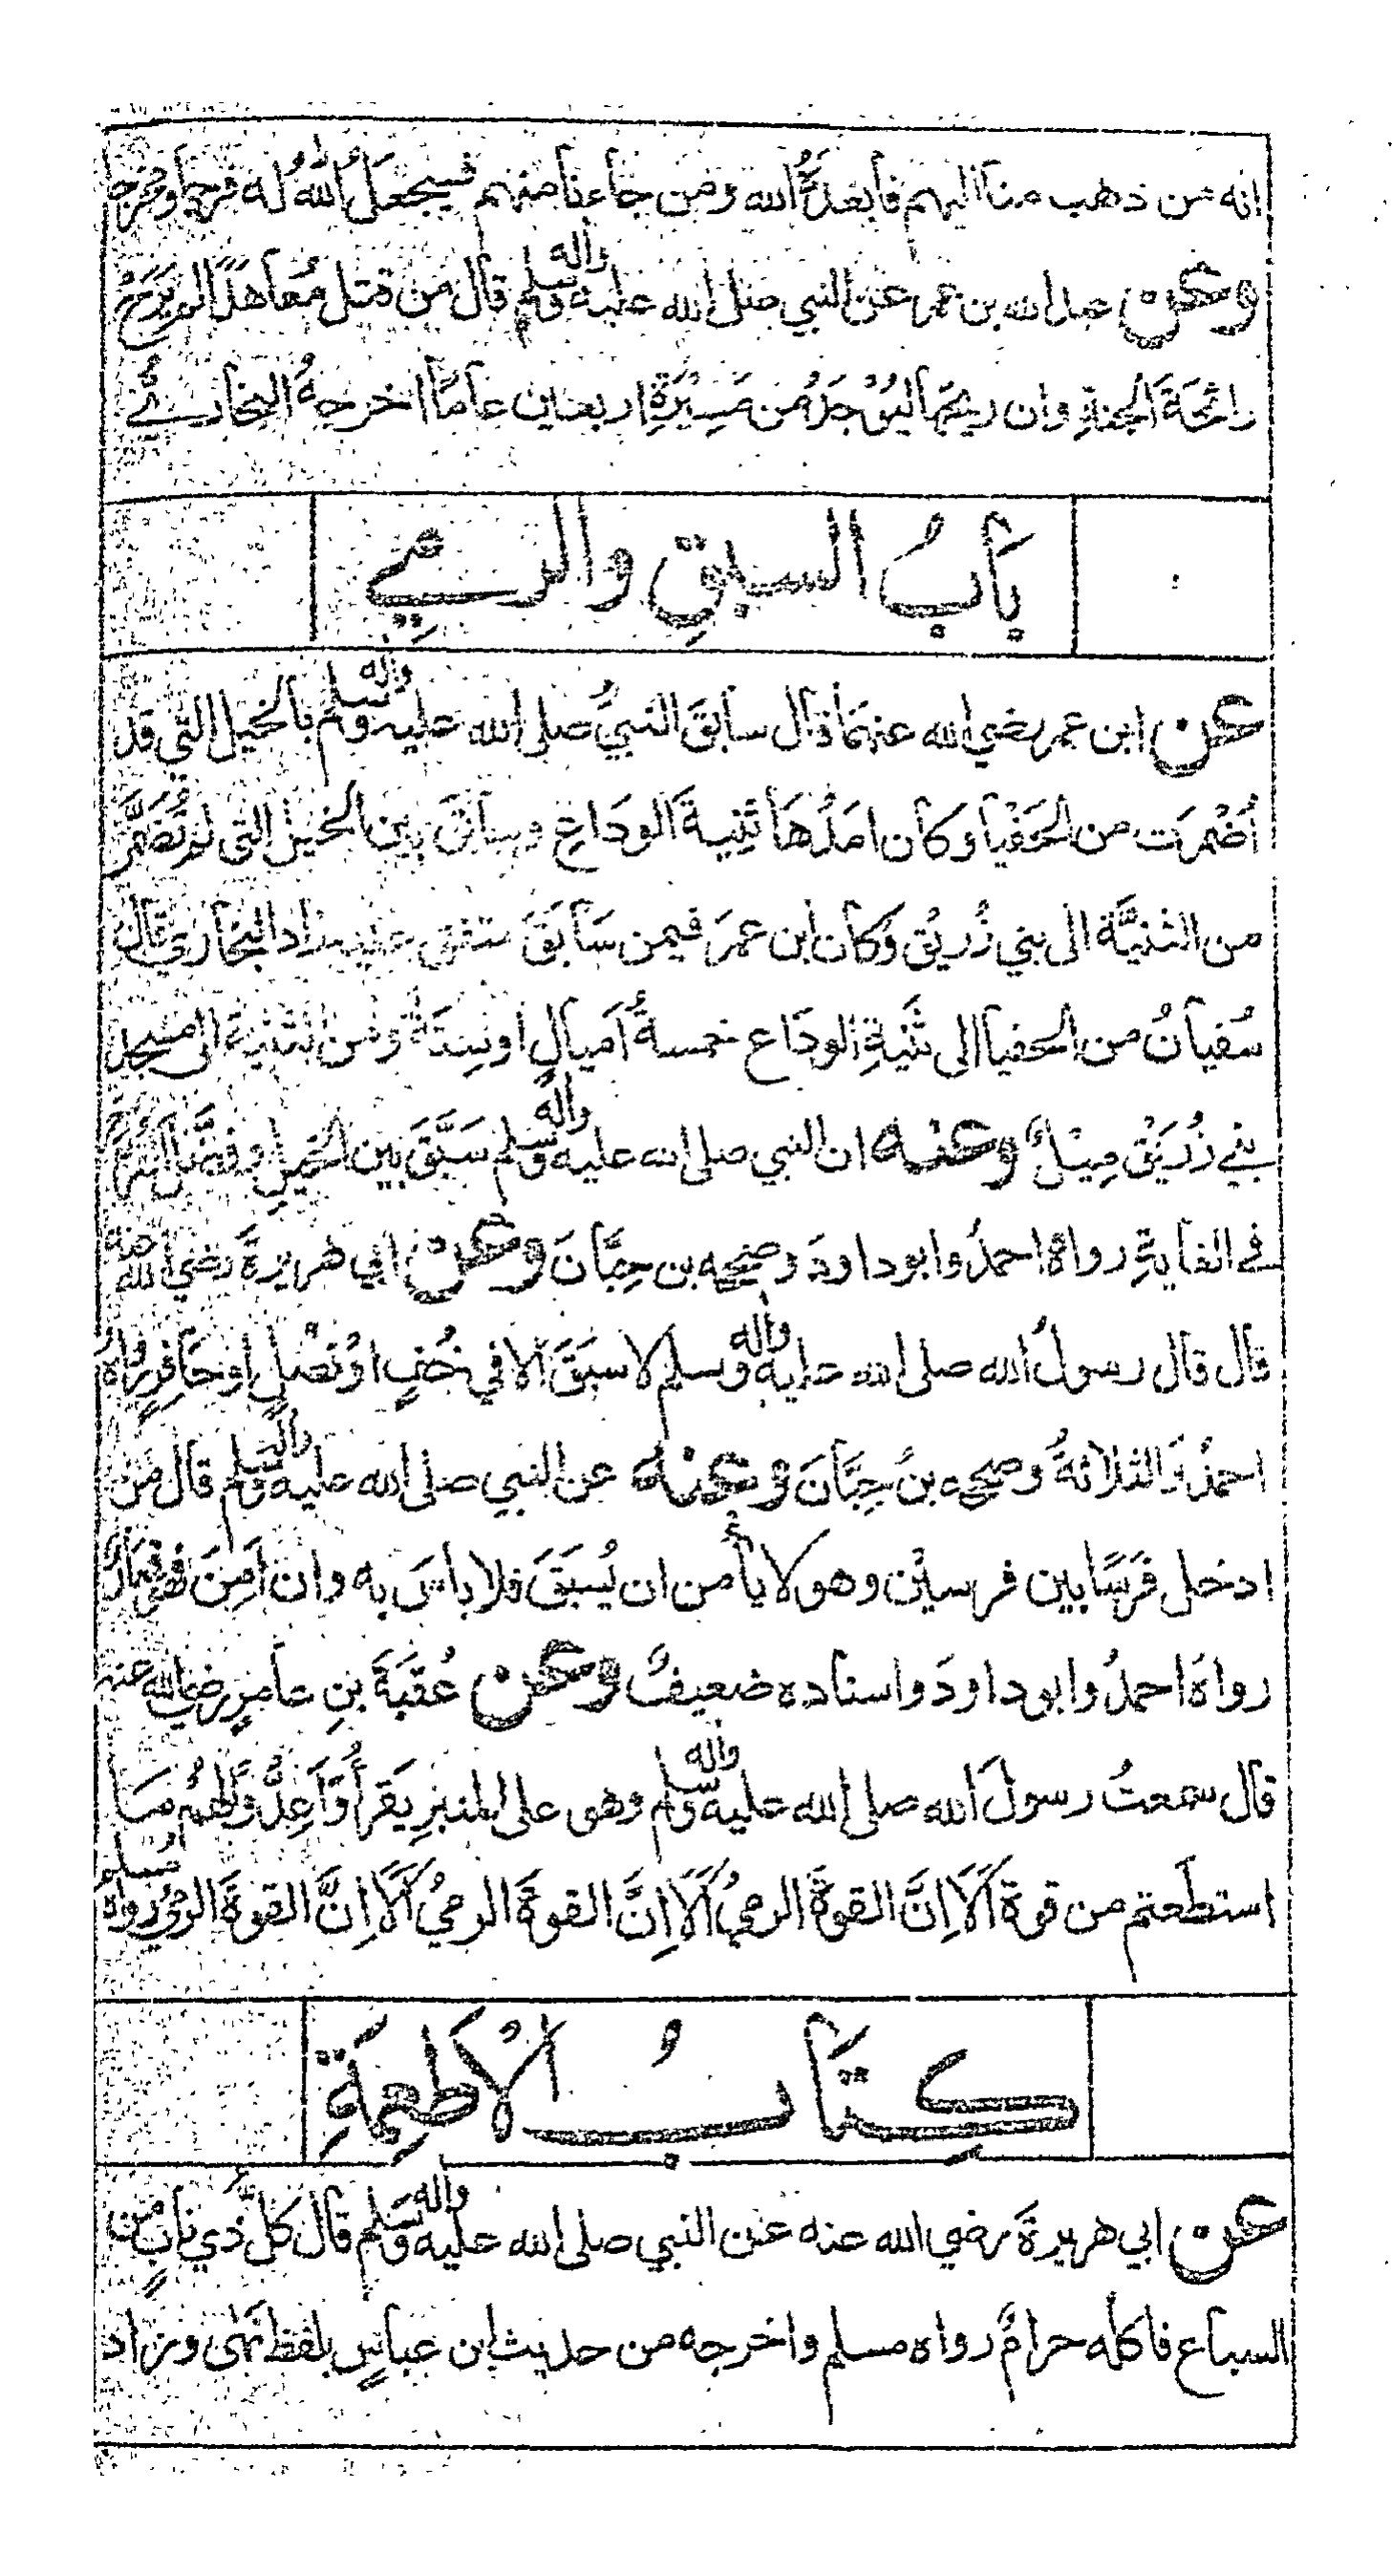 انه من ذهب منا اليهم فابعده الله ومن جاءنا منهم فسيجعل الله له فرجا ومخرجا
وعن عبد الله بن عمر عن النبي صلى الله عليه واله وسلم قال من قتل معاهدا لم يرح
رائحة الجنةِ وان ريحها ليوْجَدُ من مَسِيْرَةِ اربعين عامًا اخرجهُ البخاري
بابُ السبقِ والرمي
عن ابن عمر رضي الله عنهما قال سابقَ النبيُ صلى الله عليه واله وسلم بالخيل التي قد
اُضْمِرَت من الحَفْيا وكان امَدُهَا ثنِيةَ الودَاعِ وسابق بين الخيل التي لم تُضَمَّرْ
من الثنيَّة الى بني زُريْق وكان ابن عمرَ فيمن سَابَقَ متفق عليه زاد البخاري قال
سُفيانُ من الحفيا الى ثَنيةِ الودَاع خمسةُ اَميالٍ او سِتةٌ ومن الثنية الى مسجد
بني زُرَيْق مِيْلٌ وعنه ان النبي صلى الله عليه واله وسلم سَبَّقَ بين الخيل وفضَّل القُرَّحَ
في الغايةِ رواهُ احمدُ وابو داودَ وصححه بن حِبَّانَ وعن ابي هريرةَ رضي الله عنه
قال قال رسولُ الله صلى الله عليه واله وسلم لا سبَقَ الا في خُفٍ او نَصْلٍ او حافرٍ رواهُ
احمدُ والثلاثةُ وصححه بنُ حِبَّانَ وعنه عن النبي صلى الله عليه واله وسلم قال مَن
ادخل فَرَسًا بين فرسيْن وهو لا يأمن ان يُسبَقَ فلا باسَ به وان اَمِنَ فهو قمار
رواهَ احمدُ وابو داودَ واسناده ضعيفٌ وعن عُقبَةَ بنِ عامرٍ رضي الله عنه
قال سمعتُ رسولَ الله صلى الله عليه واله وسلم وهو على المنبرِ يَقرأُ وَاَعِدُّوْا لَهُمْ مَا
استطَعتم من قوة اَلَا اِنَّ القوةَ الرميُ اَلَا اِنَّ القوةَ الرميُ اَلَا اِنَّ القوةَ الرميُ رواهُ مسلم
كِتَابُ الاُطعِمَةِ
عن ابي هريرةَ رضي الله عنه عن النبي صلى الله عليه واله وسلم قال كلُّ ذي نابٍ من
السباع فاكله حرامٌ رواه مسلم واخرجه من حديث ابن عباسٍ بلفظ نَهَى وزاد